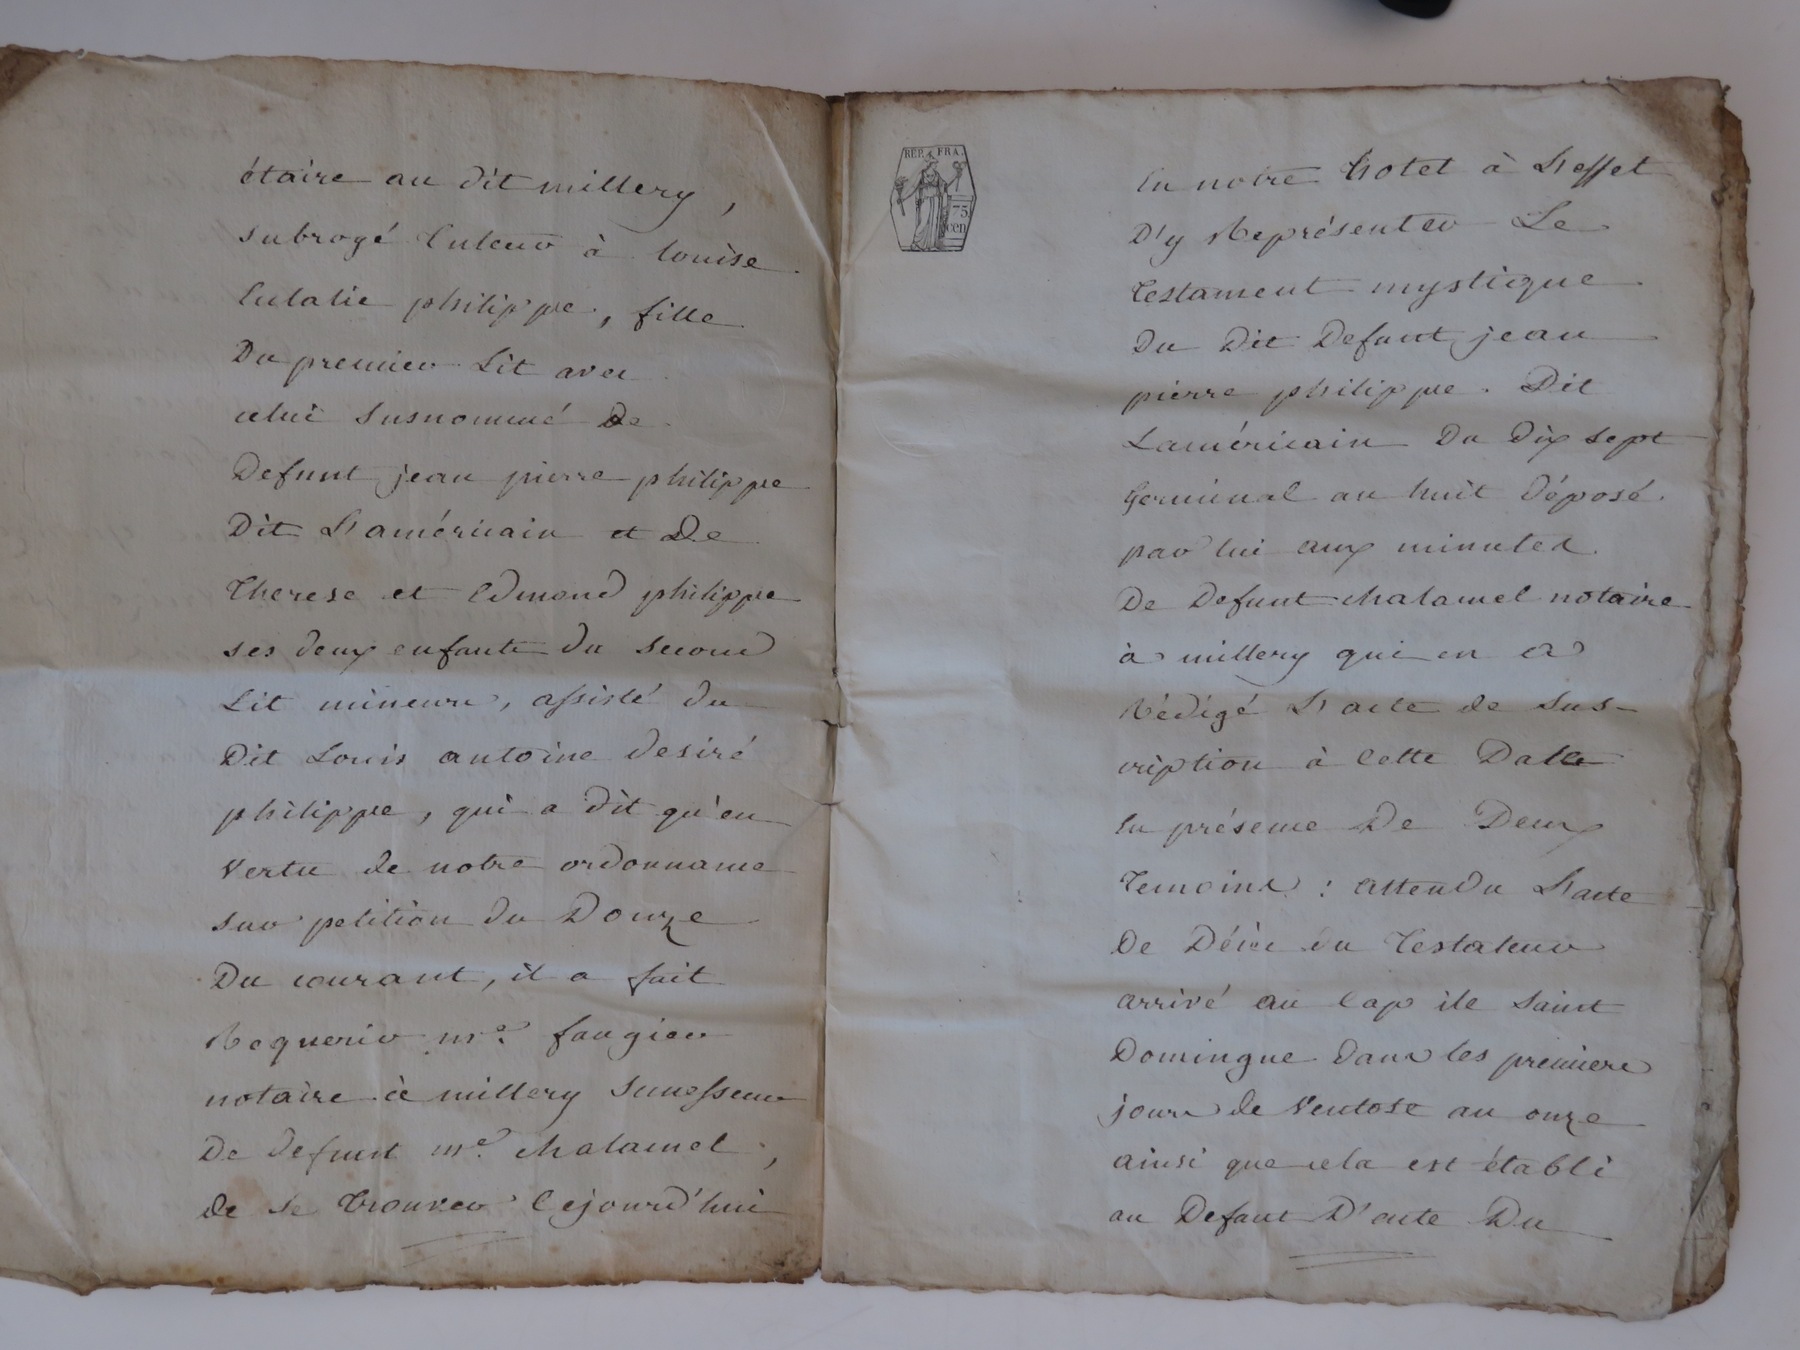 étaire au dit millery,
subrogé tuteur à louise
Eulalie philippe, fille
Du premier Lit avec
celui susnommé De
Defunt jean pierre philippe
Dit L'américain et De
Therese et Edmond philippe
ses deux enfants du second
Lit mineurs, assisté du
Dit Louis antoine desiré
philippe, qui a dit qu'en
vertu de notre ordonnance
sur petition du Douze
Du courant, il a fait
Requerir me. faugier
notaire à millery successeur
De defunt me. chalamel,
de se trouver Cejourd'hui
REP. FRA.
75
cen
En notre hotel à L'effet
D'y Représenter Le
testament mystique
Du Dit Defunt jean
pierre philippe. Dit
Laméricain Du Dix sept
Germinal an huit Déposé
par lui aux minutes
De Defunt chalamel notaire
à millery qui en a
Rédigé L'acte de sus-
cription à Cette Datte
En présence De Deux
Temoins : attendu L'acte
De Décès du Testateur
arrivé au Cap ile Saint
Domingue dans les premiers
jours de Ventose an onze
ainsi que cela est établi
au Defaut D'acte Du